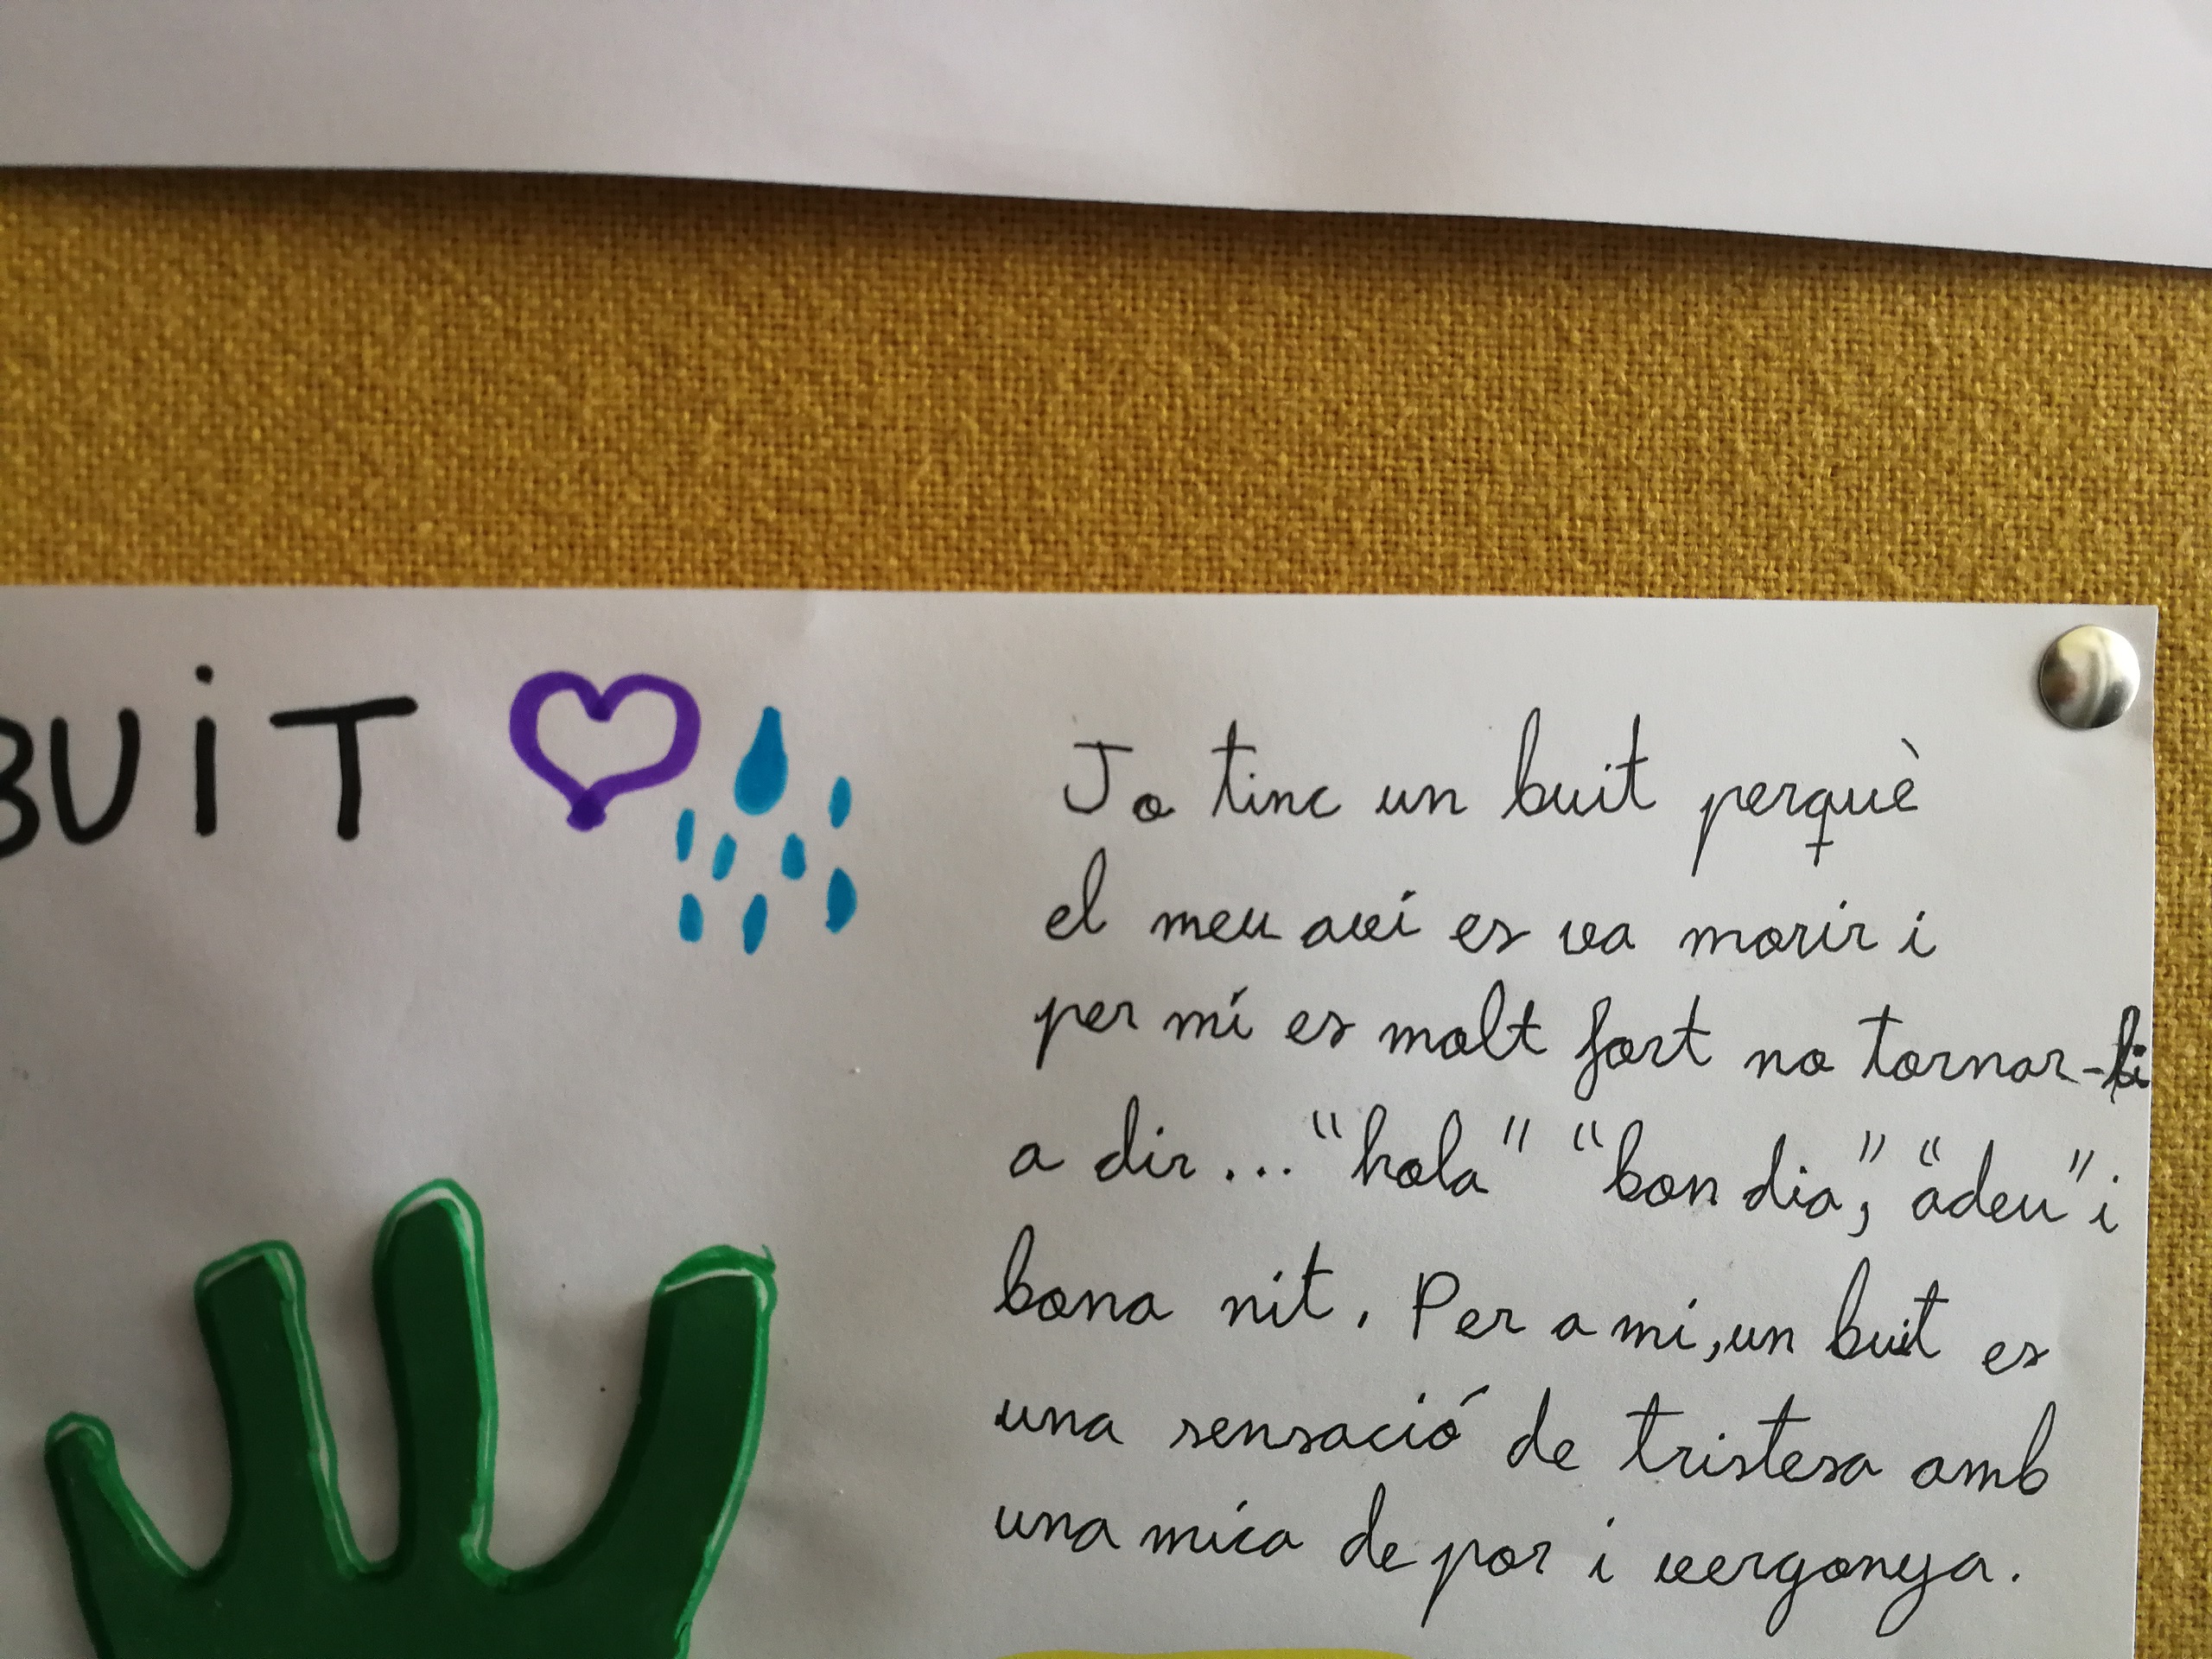 BUiT
Jo tinc un buit perquè
el meu avi es va morir i
per mí es molt fort no tornar-li
a dir... "hola" "bon dia", "adeu" i
bona nit. Per a mi, un buit es
una sensació de tristesa amb
una mica de por i vergonya.